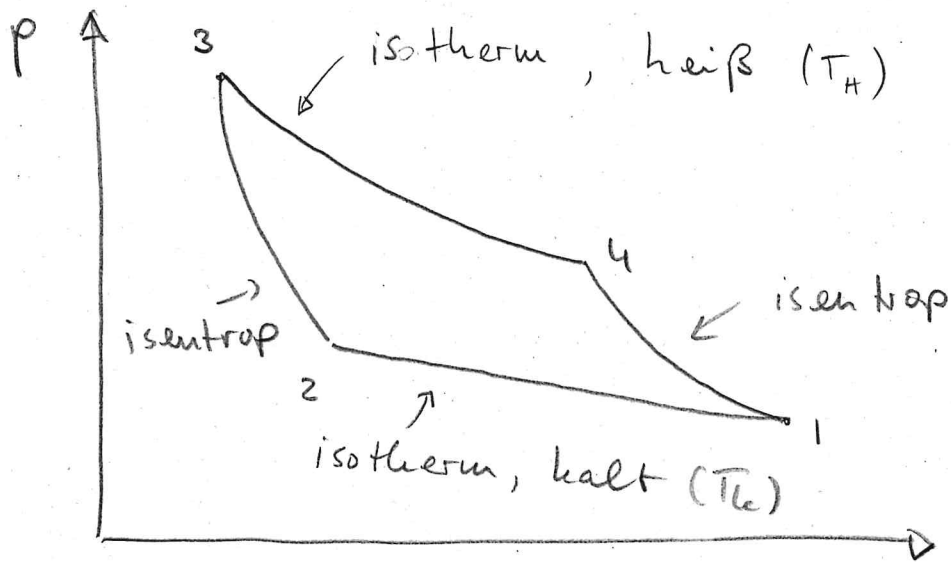 p
3
isotherm, heiß (T_H)
4
isentrop
isentrop
2
1
isotherm, kalt (T_k)